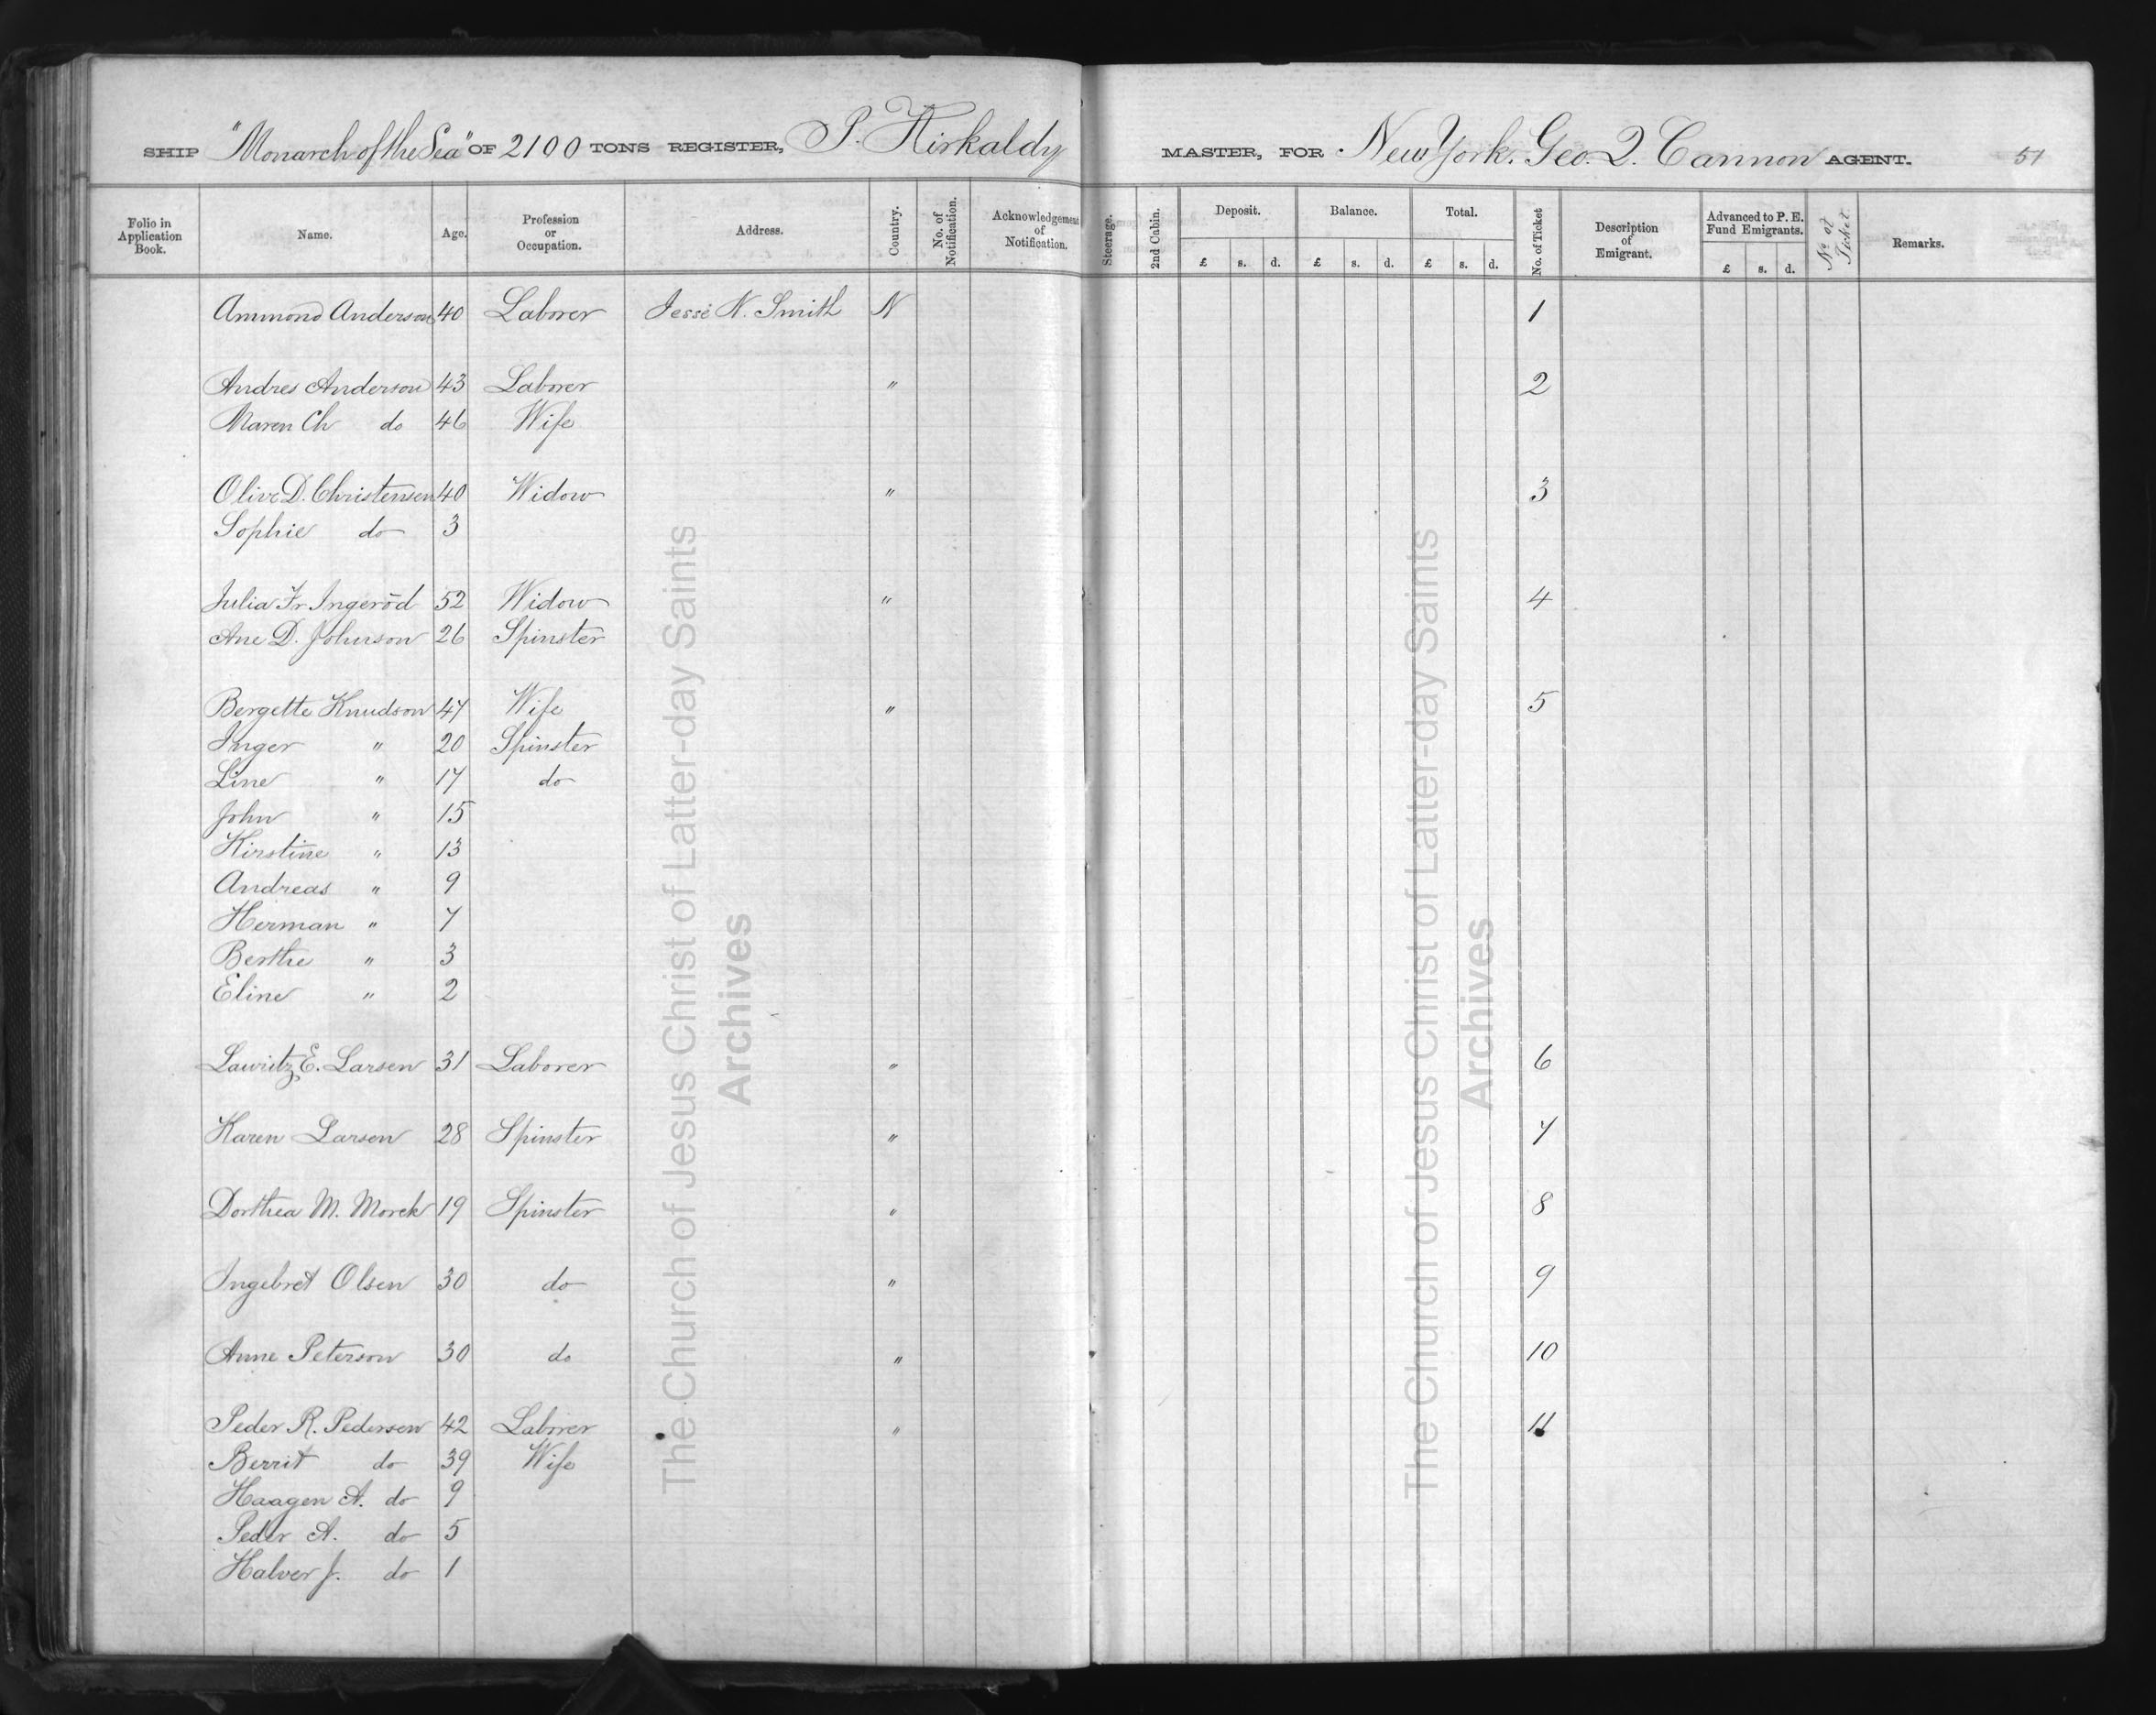 SHIP "Monarch of the Sea" OF 2100 TONS REGISTER, P. Kirkaldy MASTER, FOR New York. Geo. Q. Cannon AGENT. 51
Folio in Application Book. Name. Age. Profession or Occupation. Address. Country. No. of Notification. Acknowledgement of Notification. Steerage. 2nd Cabin. Deposit. Balance. Total. No. of Ticket Description of Emigrant. Advanced to P. E. Fund Emigrants. No of Ticket. Remarks.
£ s. d. £ s. d. £ s. d. £ s. d.
Ammond Anderson 40 Laborer Jesse N. Smith N 1
Andres Anderson 43 Laborer " 2
Maren Ch do 46 Wife
Olive D. Christensen 40 Widow " 3
Sophie do 3
Julia Fr Ingeröd 52 Widow " 4
Ane D. Johnson 26 Spinster
Bergette Knudson 47 Wife " 5
Inger " 20 Spinster
Line " 17 do
John " 15
Kirstine " 13
Andreas " 9
Herman " 7
Berthe " 3
Eline " 2
Lauritz E. Larsen 31 Laborer " 6
Karen Larsen 28 Spinster " 7
Dorthea M. Morck 19 Spinster " 8
Ingebret Olsen 30 do " 9
Anne Peterson 30 do " 10
Peder R. Pedersen 42 Laborer " 11
Berrit do 39 Wife
Haagen A. do 9
Peder A. do 5
Halver J. do 1
The Church of Jesus Christ of Latter-day Saints
Archives
The Church of Jesus Christ of Latter-day Saints
Archives